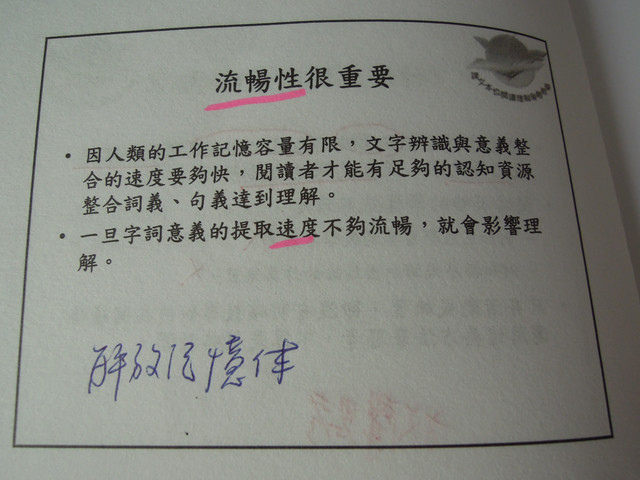 流暢性很重要
• 因人類的工作記憶容量有限，文字辨識與意義整
合的速度要夠快，閱讀者才能有足夠的認知資源
整合詞義、句義達到理解。
• 一旦字詞意義的提取速度不夠流暢，就會影響理
解。
解放記憶体